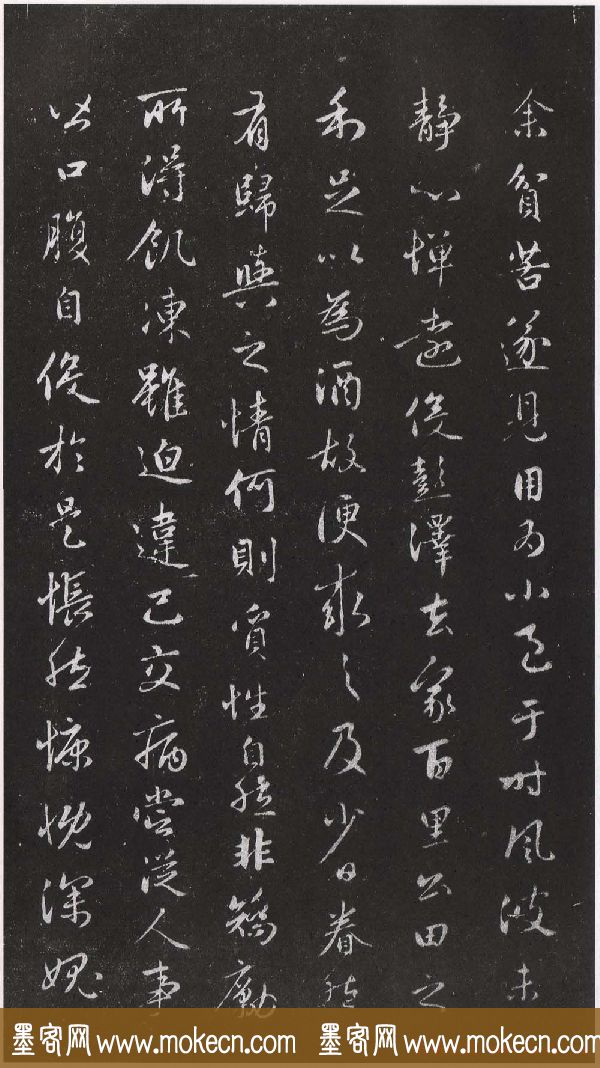 余貧苦遂見用為小邑于時風波未
静心憚遠役彭澤去家百里公田之
利足以為酒故便求之及少日眷然
有歸與之情何則質性自然非矯勵
所得飢凍雖迫違己交病嘗從人事
皆口腹自役於是悵然慷慨深愧
墨客网 www.mokecn.com 墨客网 www.mokecn.com